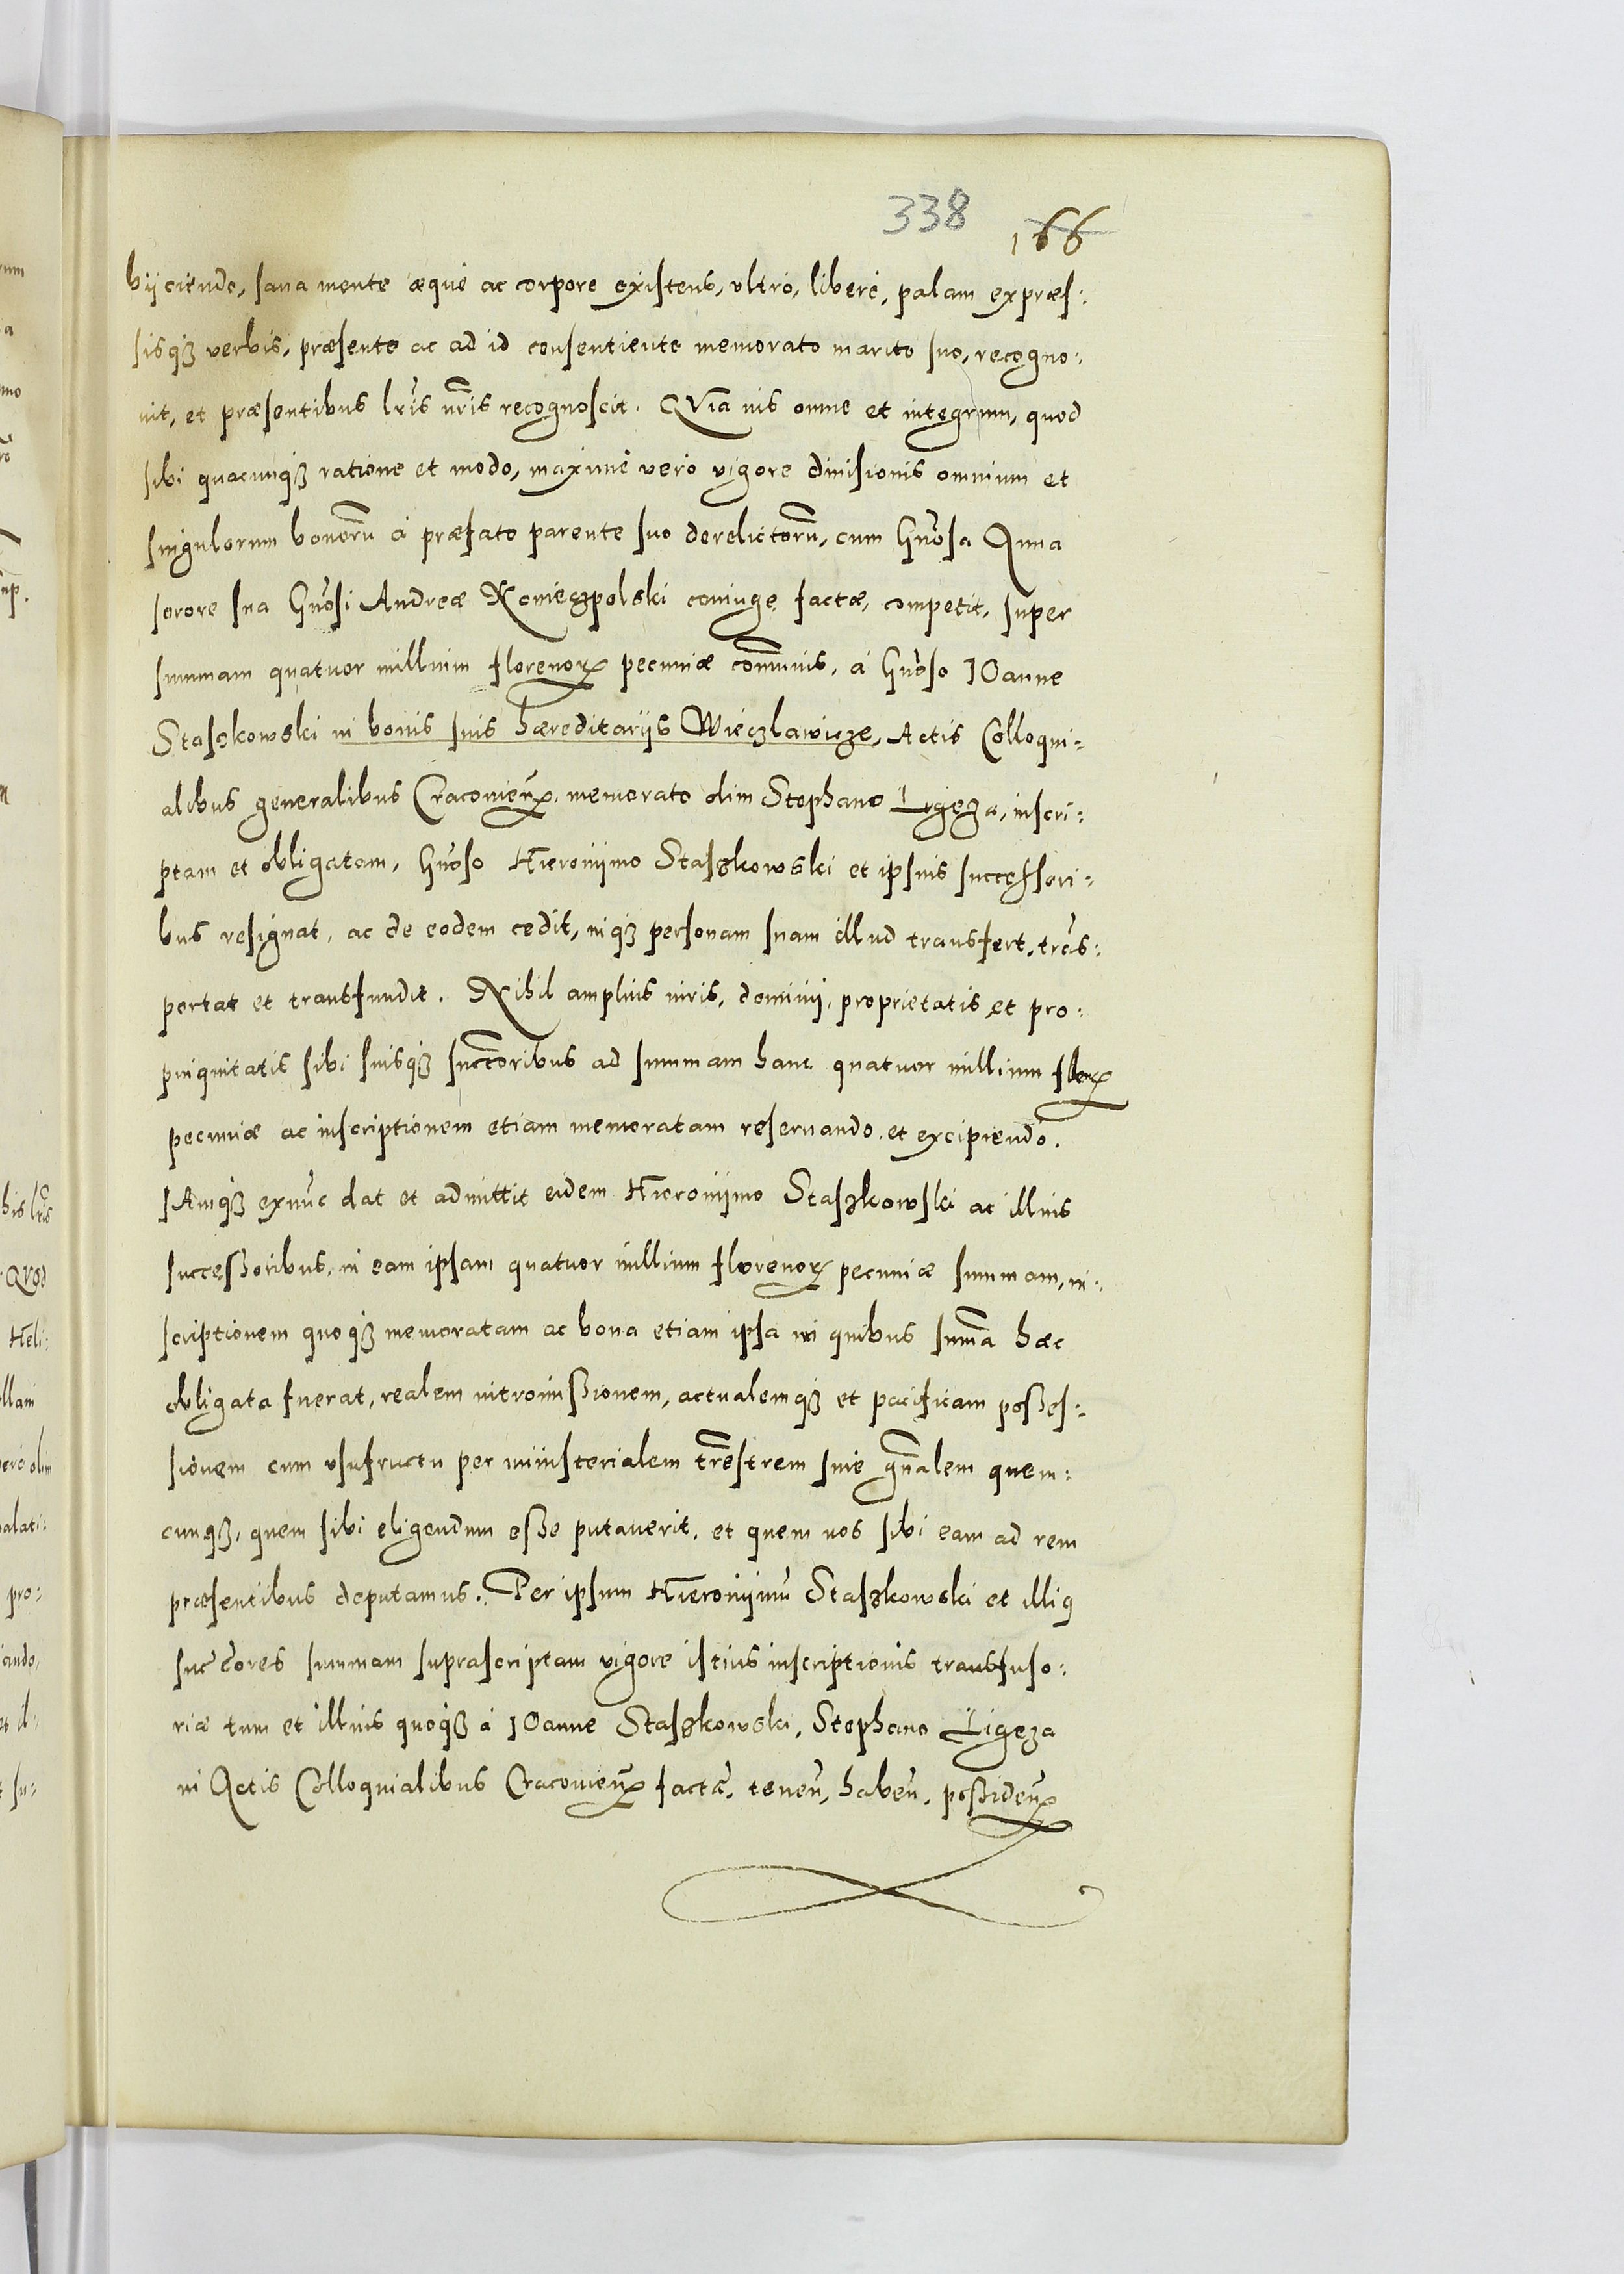 338 166
bijciendo, sana mente æquè ac corpore existens, vltrò, liberè, palam expræs:
sisq3 verbis, præsente ac ad id consentiente memorato marito suo, recogno:
uit, et præsentibus lr̃is nr̃is recognoscit. QVia ius omne et integrum, quod
sibi quacunq3 ratione et modo, maximè verò vigore diuisionis omnium et
singulorum bonorũ à præfato parente suo derelictorũ, cum Gñosa Anna
sorore sua Gñosi Andreæ Konieczpolski coniuge factæ, competit, super
summam quatuor millium florenoꝝ pecuniæ com̃unis, à Gñoso IOanne
Staszkowski in bonis suis hæreditarijs Wieczlawicze, Actis Colloqui:
alibus generalibus Cracovieñ, memorato olim Stephano Ligęza, inscri:
ptam et obligatam, Gñoso Hieronijmo Staszkowski et ipsius successori:
bus resignat, ac de eodem cedit, inq3 personam suam illud transfert, trãs:
portat et transfundit. Nihil amplius iuris, dominij, proprietatis et pro:
pinquitatis sibi suisq3 succ̃toribus ad summam hanc quatuor millium floꝝ
pecuniæ ac inscriptionem etiam memoratam reseruando et excipiendo.
IAmq3 exnũc dat et admittit eidem Hieronijmo Staszkowski ac illius
successoribus, in eam ipsam quatuor millium florenoꝝ pecuniæ summam, in:
scriptionem quoq3 memoratam ac bona etiam ipsa in quibus sum̃a hæc
obligata fuerat, realem intromissionem, actualemq3 et pacificam posses:
sionem cum vsufructu per ministerialem trẽstrem siue gñalem quem:
cunq3, quem sibi eligendum esse putauerit, et quem nos sibi eam ad rem
præsentibus deputamus. Per ipsum Hieronijmũ Staszkowski et illiꝰ
suc̃cores summam suprascriptam vigore istius inscriptionis transfuso:
riæ tum et illius quoq3 à IOanne Staszkowski, Stephano Ligęza
in Actis Colloquialibus Cracovieñ factæ, teneñ, habeñ, possideñ